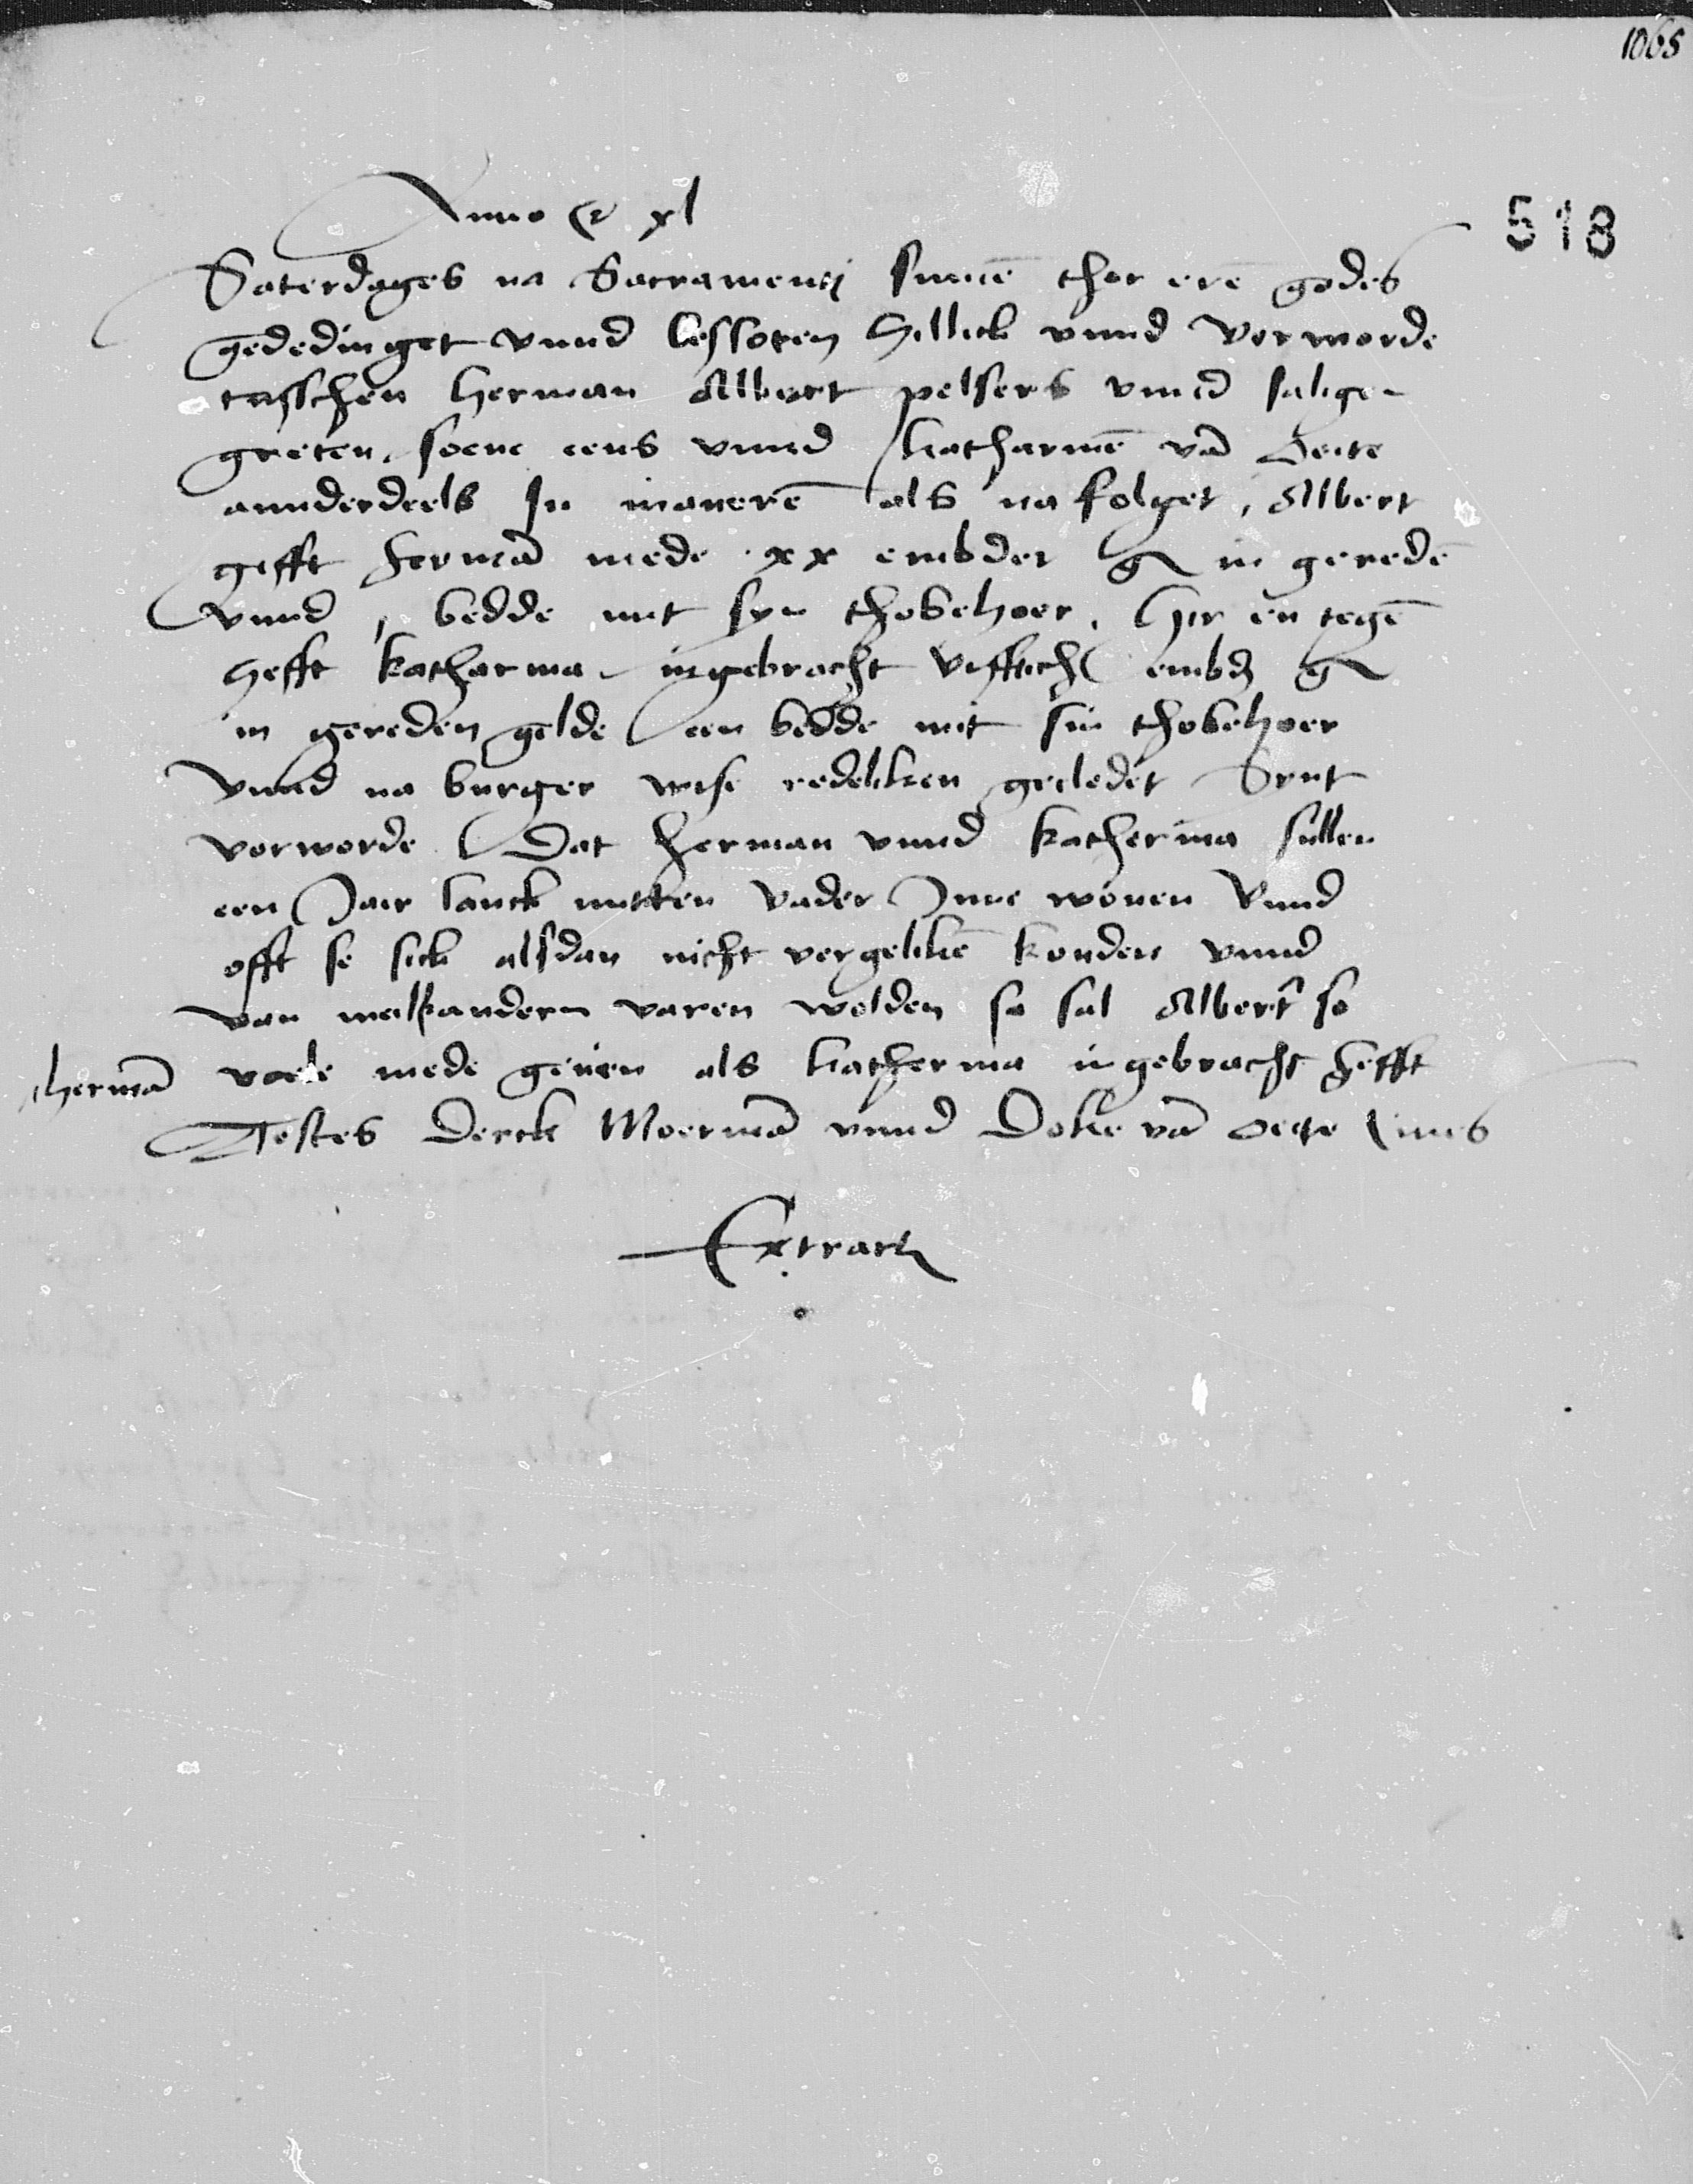 1065
518
Anno &c xl
Saterdages na Sacramenti sinnē thor erē godes
gededinget vnnd beslotten Hillick vnnd Vorworde
tusschen Herman Albert pelsers vnnd saligen
greten soene eens vnnd Katharinē vā Oeite
annderdeels In manerē als na folget, Albert
gifft Hermā mede xx embder g in geredē
vnnd 1 bedde mit syn thobehoer. Hir en tegē
Hefft Katharina ingebracht vifftich embd g
in gereden gelde een bedde mit sin thobehoer
Vnnd na burger wise redeliken gecledet Synt
vorworde Dat Herman vnnd Katherina sullen
een Jair lanck mitten Vader Inne wonen Vnnd
offt se sick alsdan nicht vergelikē konden vnnd
van malkandern varen wolden so sal Albert so
Hermā voele mede geuen als Katherina ingebracht Hefft
Testes Derck Moermā vnnd Doke vā Oeite Ciues
Extract